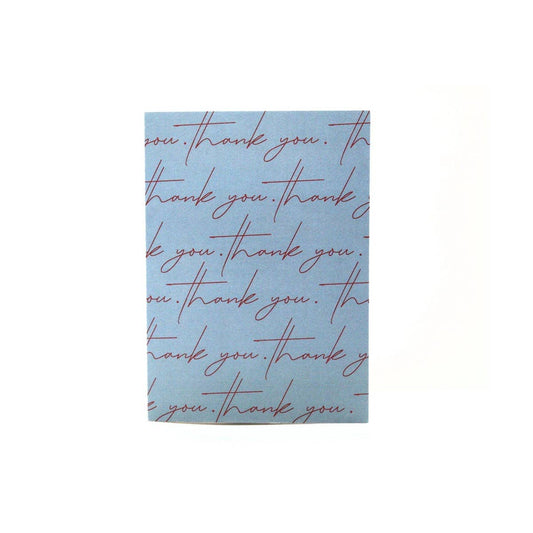 you. thank you. th
hank you. thank
k you. thank you. t
ou. thank you. tha
hank you. thank y
k you. thank you. t